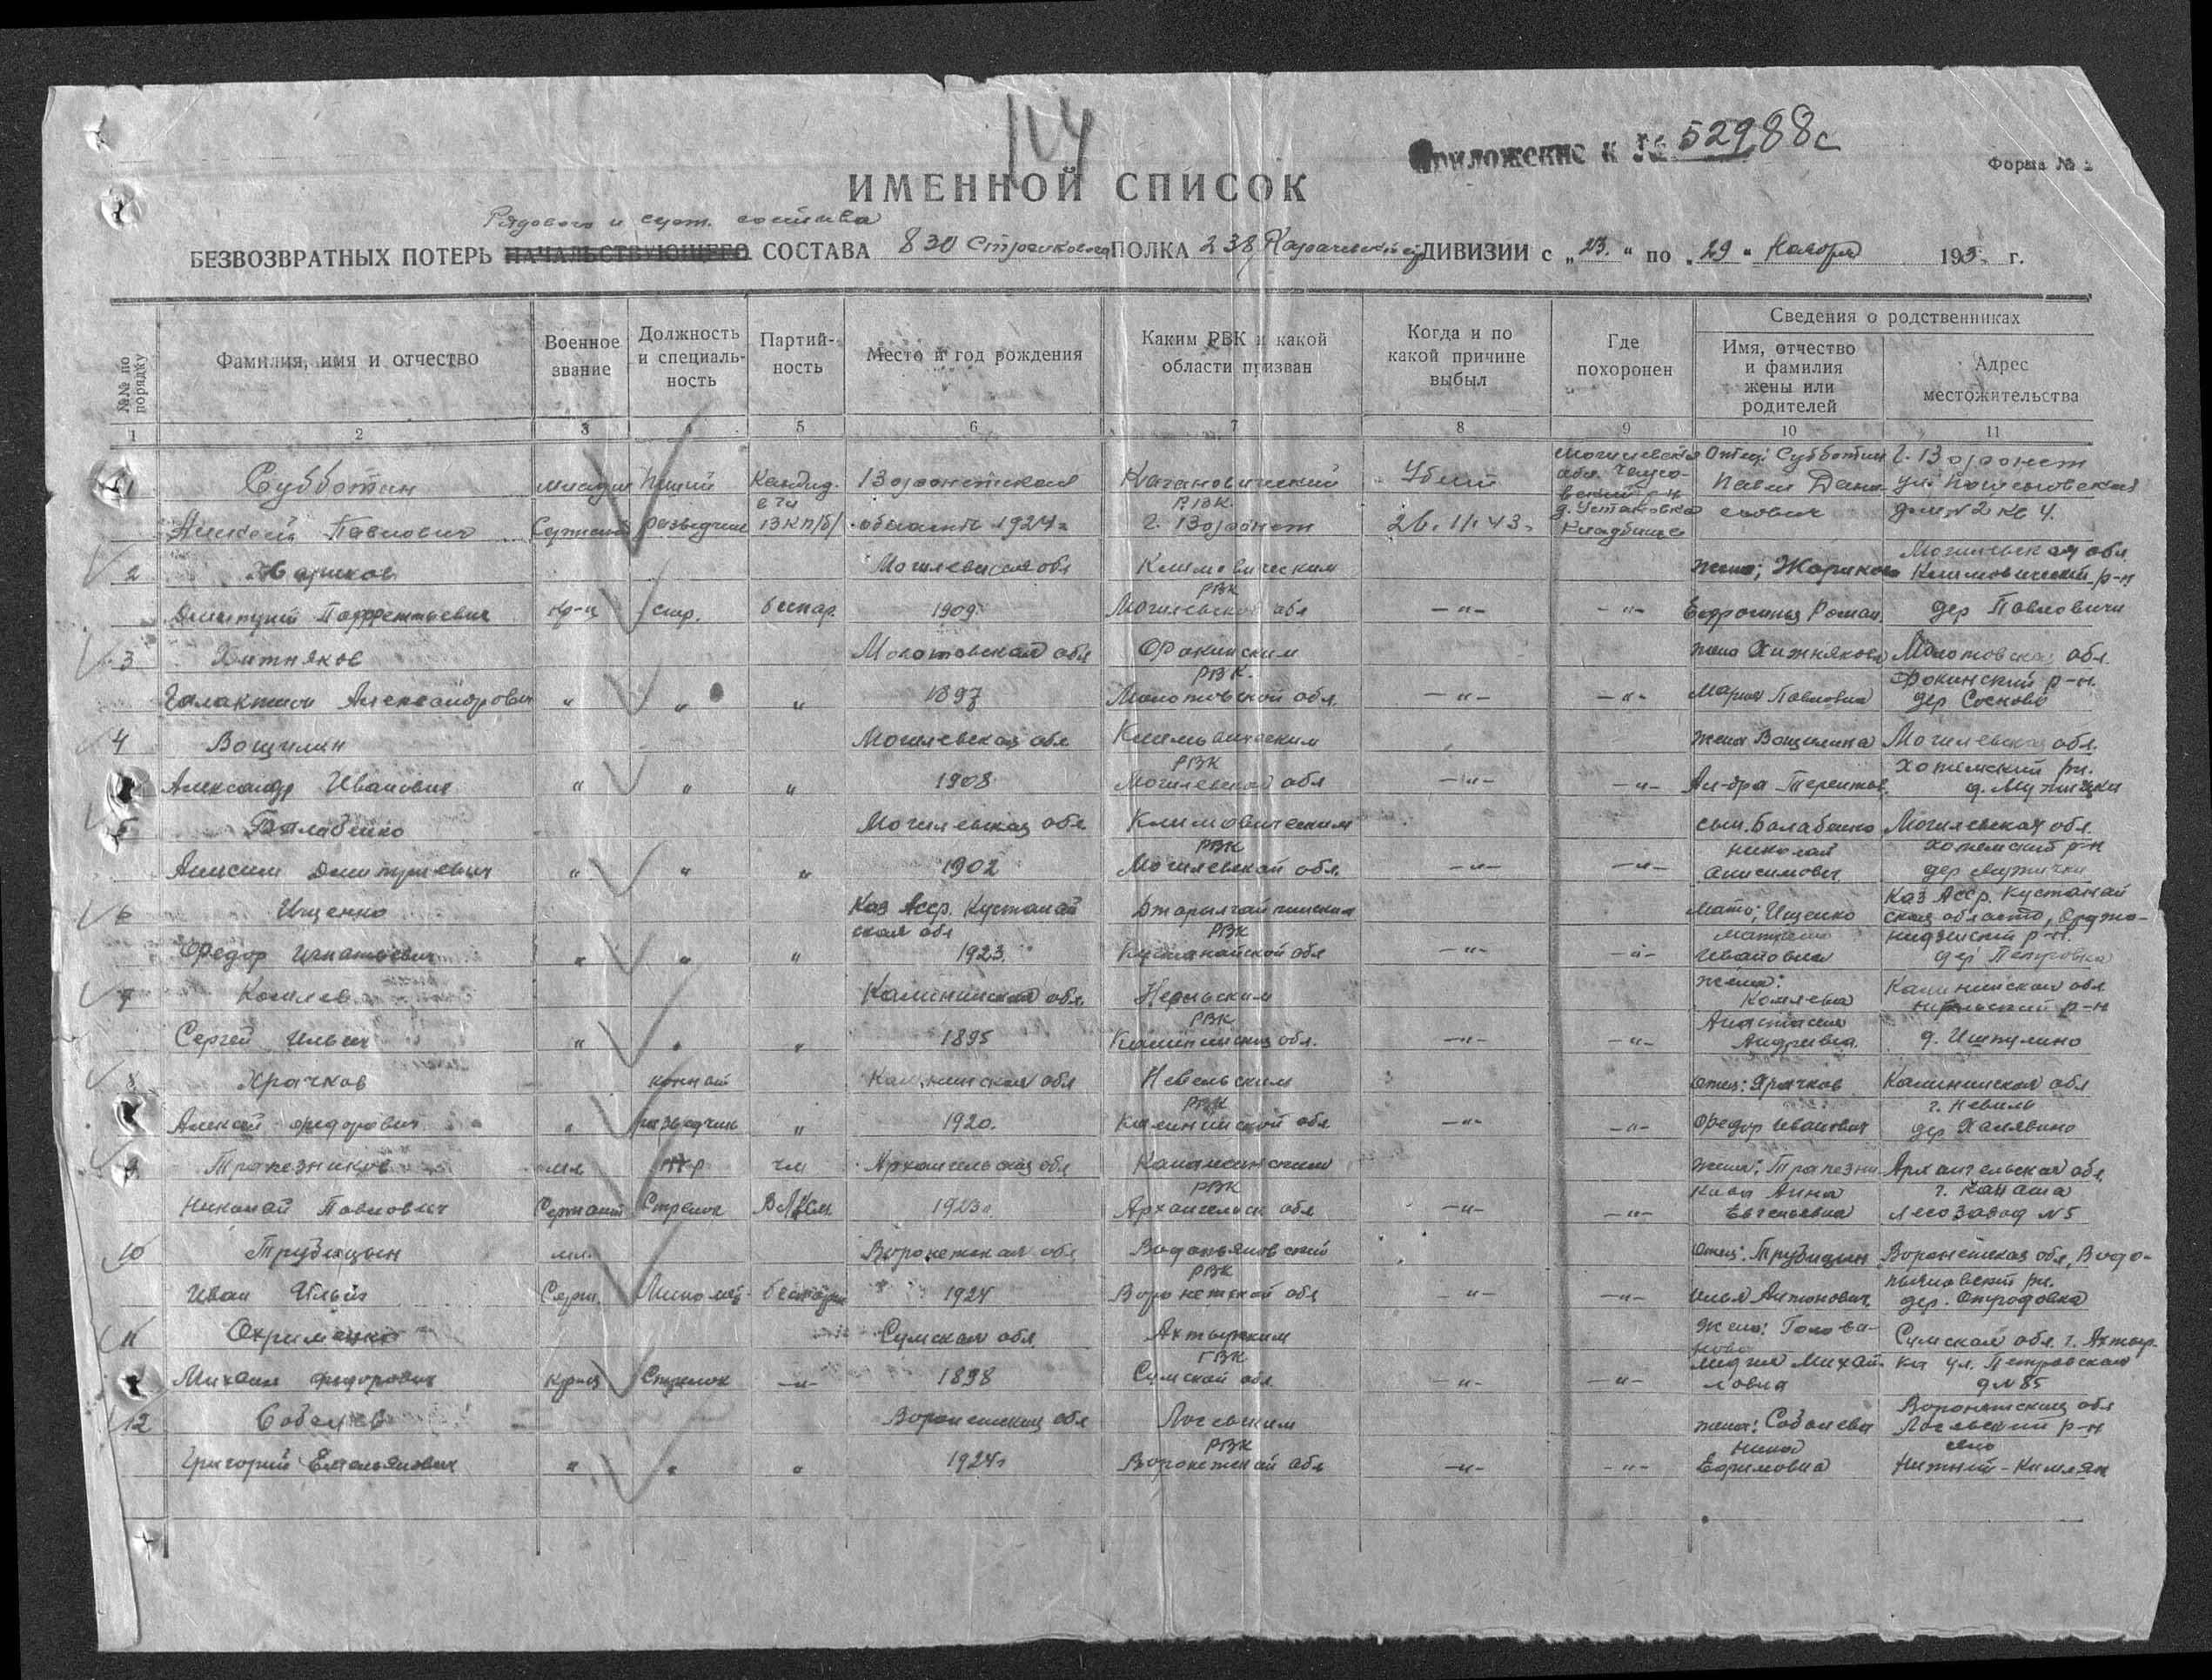 114
Приложение к № 52988с
Форма № 2
ИМЕННОЙ СПИСОК
Рядового и серж. состава
БЕЗВОЗВРАТНЫХ ПОТЕРЬ НАЧАЛЬСТВУЮЩЕГО СОСТАВА 830 Стрелкового ПОЛКА 238 Карачевской ДИВИЗИИ с „23.“ по „29“ Ноября 193 г.
№№ по порядку
Фамилия, имя и отчество
Военное звание
Должность и специальность
Партийность
Место и год рождения
Каким РВК и какой области призван
Когда и по какой причине выбыл
Где похоронен
Сведения о родственниках
Имя, отчество и фамилия жены или родителей
Адрес местожительства
1 2 3 4 5 6 7 8 9 10 11
1 Субботин Младши Пеший Кандид. Воронежская Кагановический Убит Могилевская Отец: Субботин г. Воронеж
РВК обл. Чаусовский р-н Павел Дани- ул.
Алексей Павлович Сержант разведчик ВКП/б/ область 1924г г. Воронеж 26.11.43г д. Установка лович дом №2 кв 4.
Кладбище
2 Жариков Могилевская обл Климовическим жена; Жарикова Могилевская обл.
РВК Климовический р-н
Дмитрий Парфентьевич кр-ц стр. беспар. 1909 Могилевской обл —"— —"— Ефросинья Роман. дер Павловичи
3 Хижняков Молотовская обл Фокинским жена Хижнякова Молотовская обл.
РВК. Фокинский р-н.
Галактион Александрович " " " 1897 Молотовской обл. —"— —"— Мария Павловна дер Сосново
4 Вощилин Могилевская обл Климовическим жена Вощилина Могилевская обл.
РВК Хотимский рн.
Александр Иванович " " " 1908 Могилевской обл —"— —"— Ал-дра Терентьев. д. Мужички
5 Балабенко Могилевская обл Климовическим сын. Балабенко Могилевская обл.
РВК Николай Хотимский р-н
Анисим Дмитриевич " " " 1902 Могилевской обл. —"— —"— Анисимович. дер Мужички
6 Ищенко Каз Асср. Кустанайская обл Мать; Ищенко Каз Асср. Кустанайская область, Орджо-
РВК нидзиский р-н.
Федор Игнатьевич " " " 1923. Кустанайской обл —"— —"— Ивановна дер Петровка
7 Комлев Калининская обл. Нерльским жена: Комлева Калининская обл
РВК Анастасия Нерльский р-н
Сергей Ильич " " " 1895 Калининская обл. —"— —"— Андреевна. д. Ишпулино
8 Храчков конный Калининская обл Невельским отец: Храчков Калининская обл
РВК г. Невель
Алексей Федорович " разведчик " 1920. Калининской обл —"— —"— Федор Иванович дер Халявино
9 Трапезников мл чл Архангельская обл жена: Трапезни- Архангельская обл.
РВК кова Анна
Николай Павлович Сержант Стрелок ВЛКСМ. 1923г. Архангельск обл —"— —"— Евгеньевна Лесозавод №5
10 Трубицын мл. Воронежская обл. Водопьяновский отец: Трубицин Воронежская обл, Водо-
РВК пьяновский рн.
Иван Ильич Серж. Миномет. беспарт 1924 Воронежской обл —"— —"— Илья Антонович. дер.
11 Охрименко Сумская обл. Ахтырским жена: Голова- Сумская обл. г. Ахтыр-
ГВК Лидия Михай- ка ул. Петровская
Михаил Федорович кр-ц Стрелок —"— 1898 Сумской обл. —"— —"— ловна д №85
12 Соболев Воронежская обл Лосевским жена: Соболева Воронежская обл
РВК Нина Лосевский р-н
Григорий Емельянович " " " 1924г Воронежской обл —"— —"— Ефимовна село Нижний-Кисляй